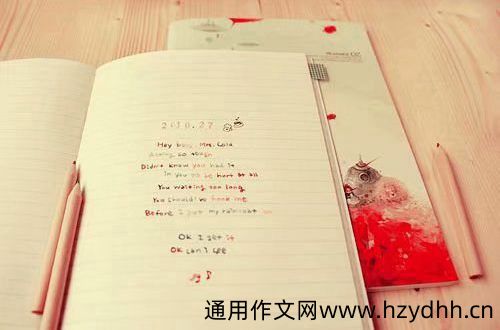 2010.27
Hey boy, Mrs. Cold
Acting so tough
Didn't know you had it
In you to be hurt at all
You waiting too long
You should've hook me
Before I put my raincoat on
OK I get it
OK can I see
通用作文网www.hzydhh.cn